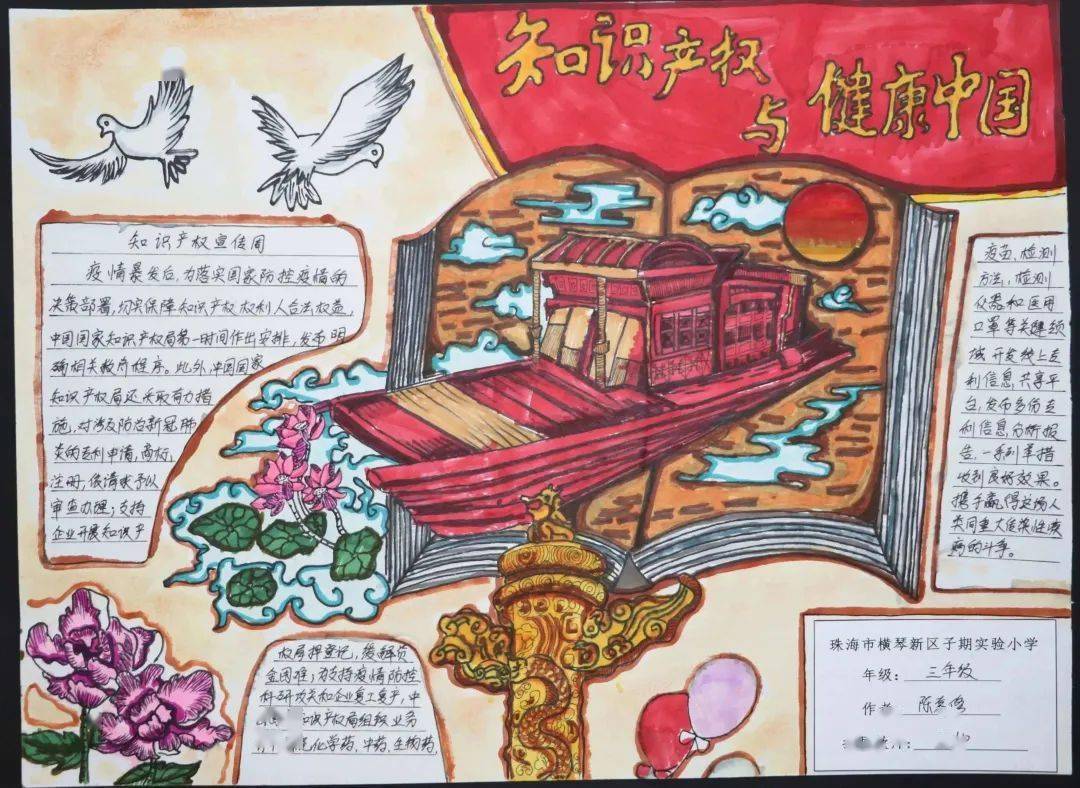 知识产权
与 健康中国
知识产权宣传周
疫情暴发后,为落实国家防控疫情的
决策部署,切实保障知识产权权利人合法权益,
中国国家知识产权局第一时间作出安排,发布明
确相关救济程序。此外,中国国家
知识产权局还采取有力措
施,对涉及防治新冠肺
炎的专利申请,商标,
注册,依请求予以
审查办理;支持
企业开展知识产
权质押登记,缓解资
金困难;为支持疫情防控
科研攻关和企业复工复产,中
知识产权局组织业务
化学药,中药,生物药,
疫苗,检测
方法,检测
仪器和医用
口罩等关键领
域开发线上专
利信息共享平
台,发布多份专
利信息分析报
告,一系列举措
收到良好效果。
携手赢得这场人
类同重大传染性疾
病的斗争。
珠海市横琴新区子期实验小学
年级:三年级
作者 陈